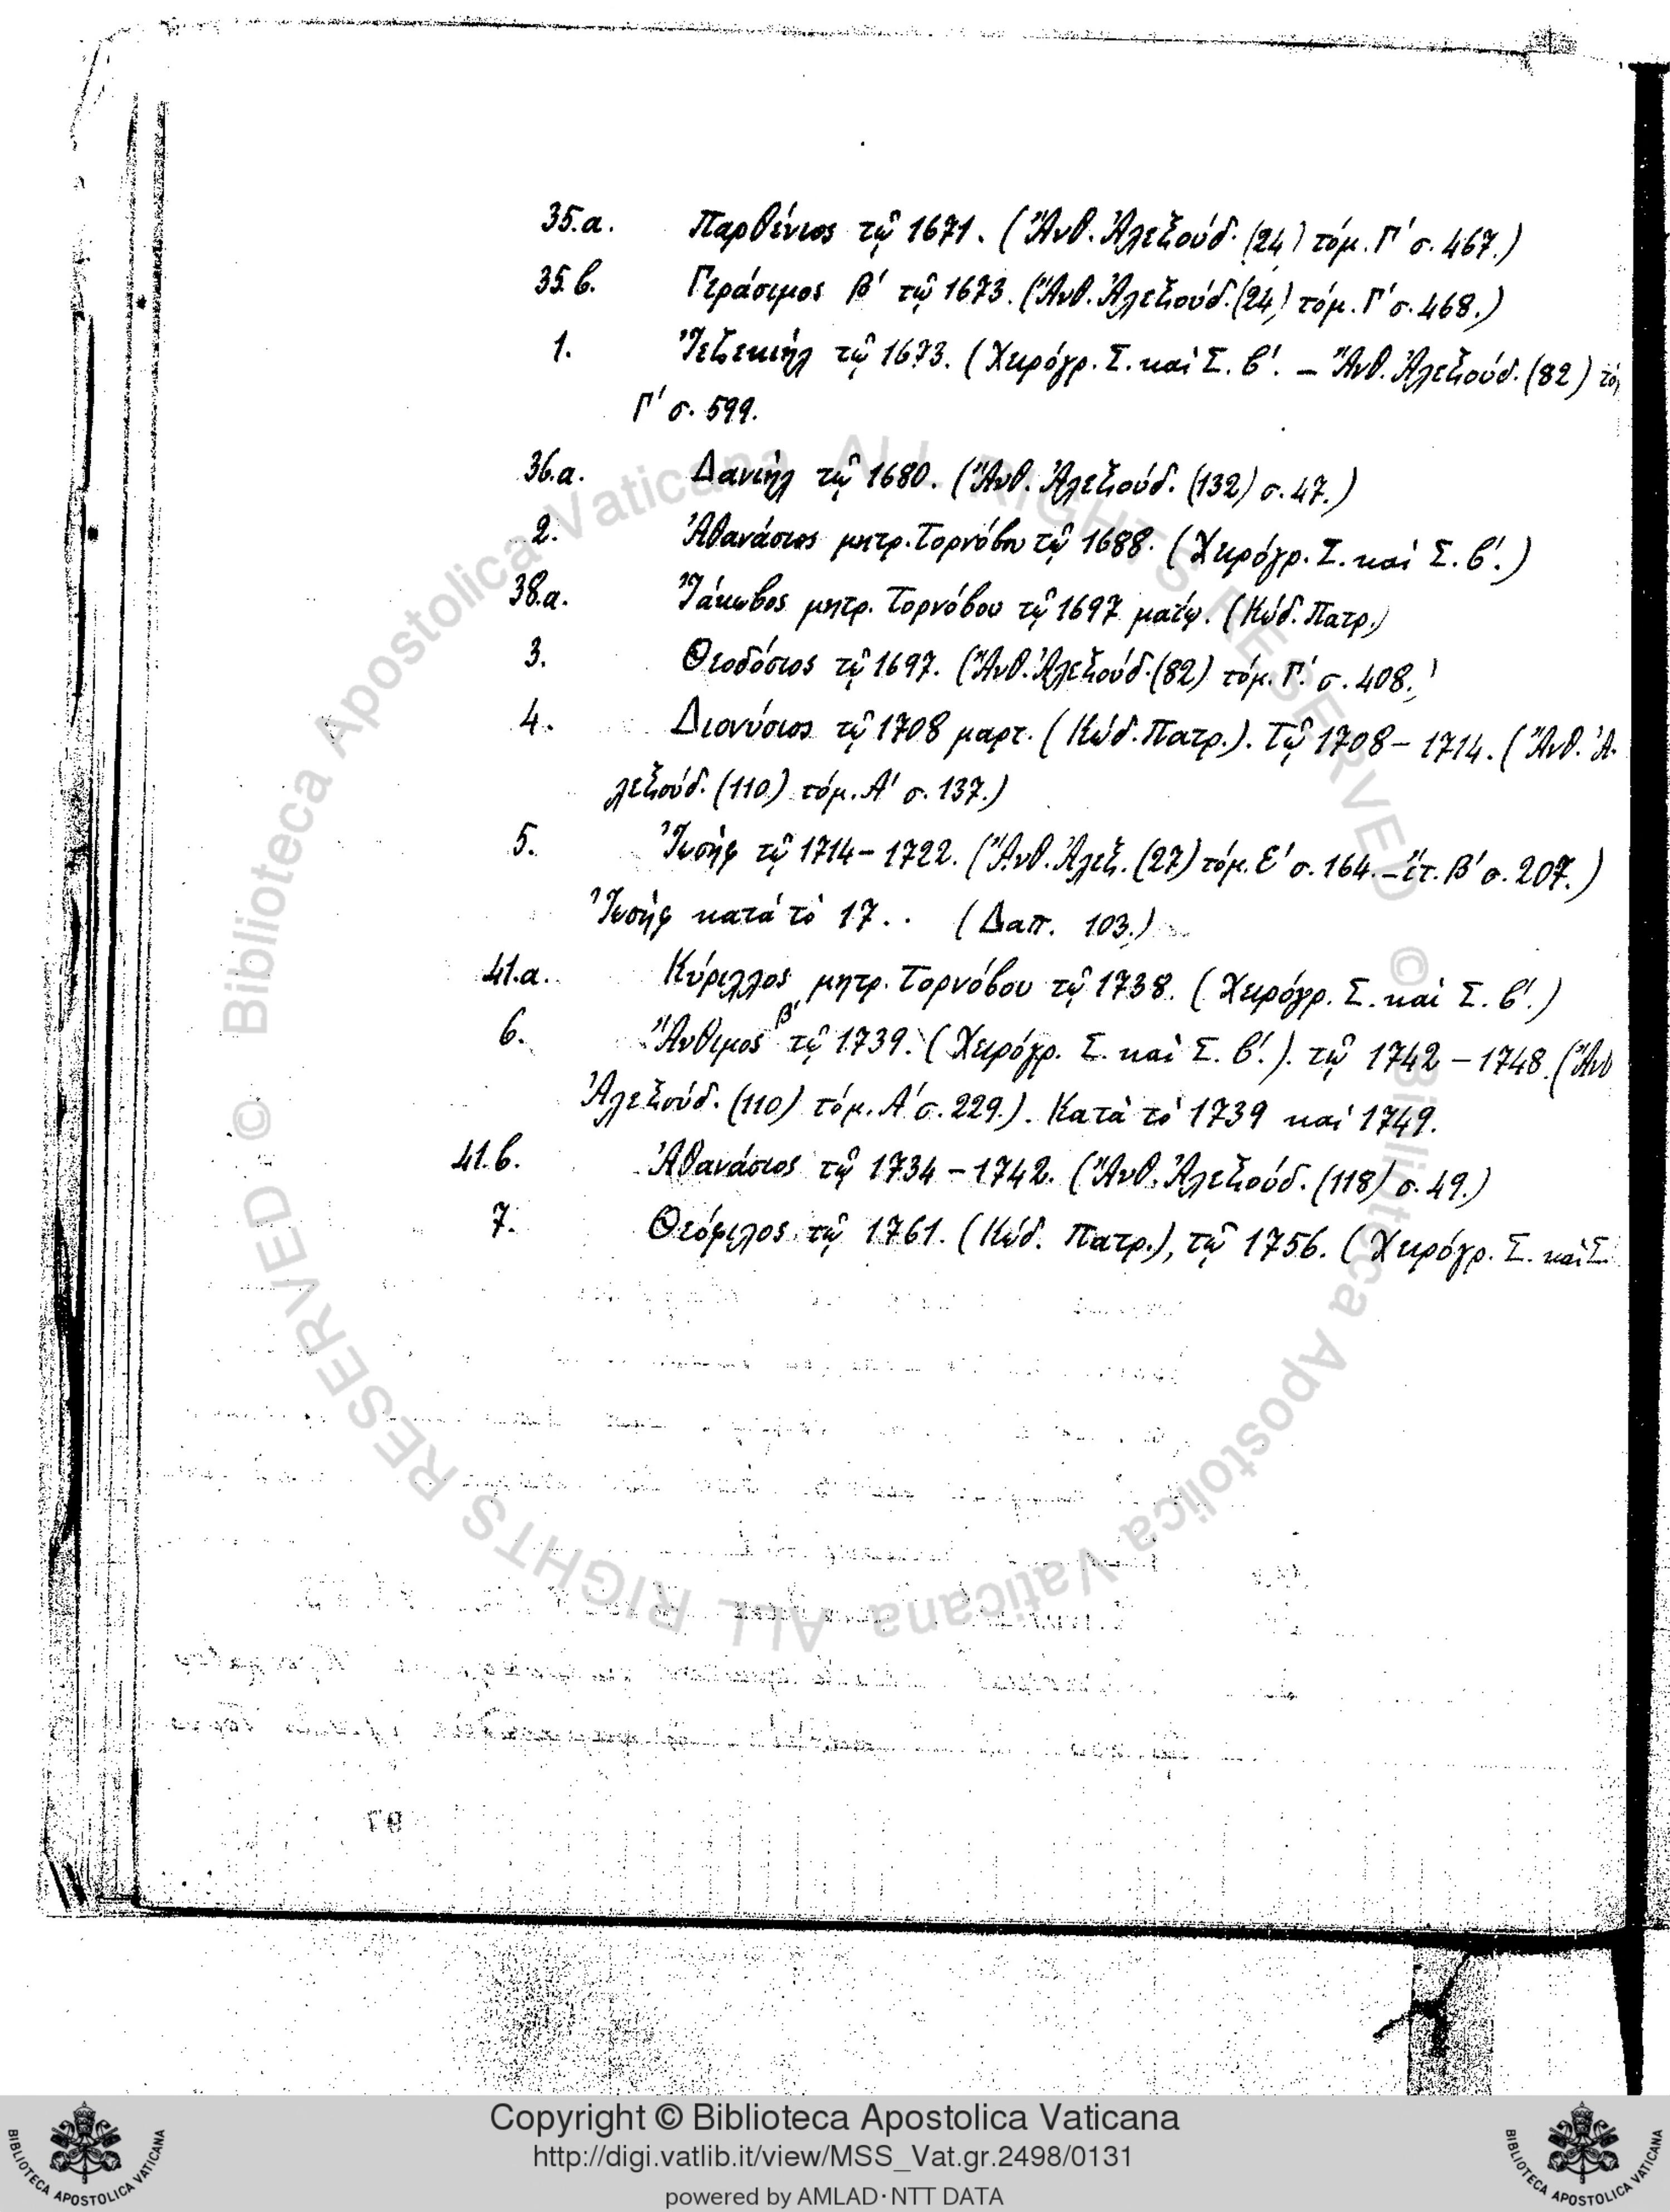 35.α. Παρθένιος τῷ 1671. (Ἄνθ. Ἀλεξούδ. (24) τόμ. Γ΄ σ. 467.)
35.β. Γεράσιμος β΄ τῷ 1673. (Ἄνθ. Ἀλεξούδ. (24) τόμ. Γ΄ σ. 468.)
1. Ἰεζεκιὴλ τῷ 1673. (Χειρόγρ. Σ. καὶ Σ. β΄. – Ἄνθ. Ἀλεξούδ. (82) τό
Γ΄ σ. 599.
36.α. Δανιὴλ τῷ 1680. (Ἄνθ. Ἀλεξούδ. (132) σ. 47.)
2. Ἀθανάσιος μητρ. Τορνόβου τῷ 1688. (Χειρόγρ. Σ. καὶ Σ. β΄.)
38.α. Ἰάκωβος μητρ. Τορνόβου τῷ 1697 μαΐῳ. (Κώδ. Πατρ.)
3. Θεοδόσιος τῷ 1697. (Ἄνθ. Ἀλεξούδ. (82) τόμ. Γ΄. σ. 408.)
4. Διονύσιος τῷ 1708 μαρτ. (Κώδ. Πατρ.). Τῷ 1708 – 1714. (Ἄνθ. Ἀ-
λεξούδ. (110) τόμ. Α΄ σ. 137.)
5. Ἰωσὴφ τῷ 1714 – 1722. (Ἄνθ. Ἀλεξ. (27) τόμ. Ε΄ σ. 164. – ἔτ. Β΄ σ. 207.)
Ἰωσὴφ κατὰ τὸ 17 . . (Δαπ. 103.)
41.α. Κύριλλος μητρ. Τορνόβου τῷ 1738. (Χειρόγρ. Σ. καὶ Σ. β΄.)
6. Ἄνθιμος β΄ τῷ 1739. (Χειρόγρ. Σ. καὶ Σ. β΄.). τῷ 1742 – 1748. (Ἄνθ
Ἀλεξούδ. (110) τόμ. Α΄ σ. 229.). Κατὰ τὸ 1739 καὶ 1749.
41.β. Ἀθανάσιος τῷ 1734 – 1742. (Ἄνθ. Ἀλεξούδ. (118) σ. 49.)
7. Θεόφιλος τῷ 1761. (Κώδ. Πατρ.), τῷ 1756. (Χειρόγρ. Σ. καὶ Σ.
© Biblioteca Apostolica Vaticana ALL RIGHTS RESERVED © Biblioteca Apostolica Vaticana ALL RIGHTS RESERVED
Copyright © Biblioteca Apostolica Vaticana
http://digi.vatlib.it/view/MSS_Vat.gr.2498/0131
powered by AMLAD · NTT DATA
BIBLIOTECA APOSTOLICA VATICANA
BIBLIOTECA APOSTOLICA VATICANA